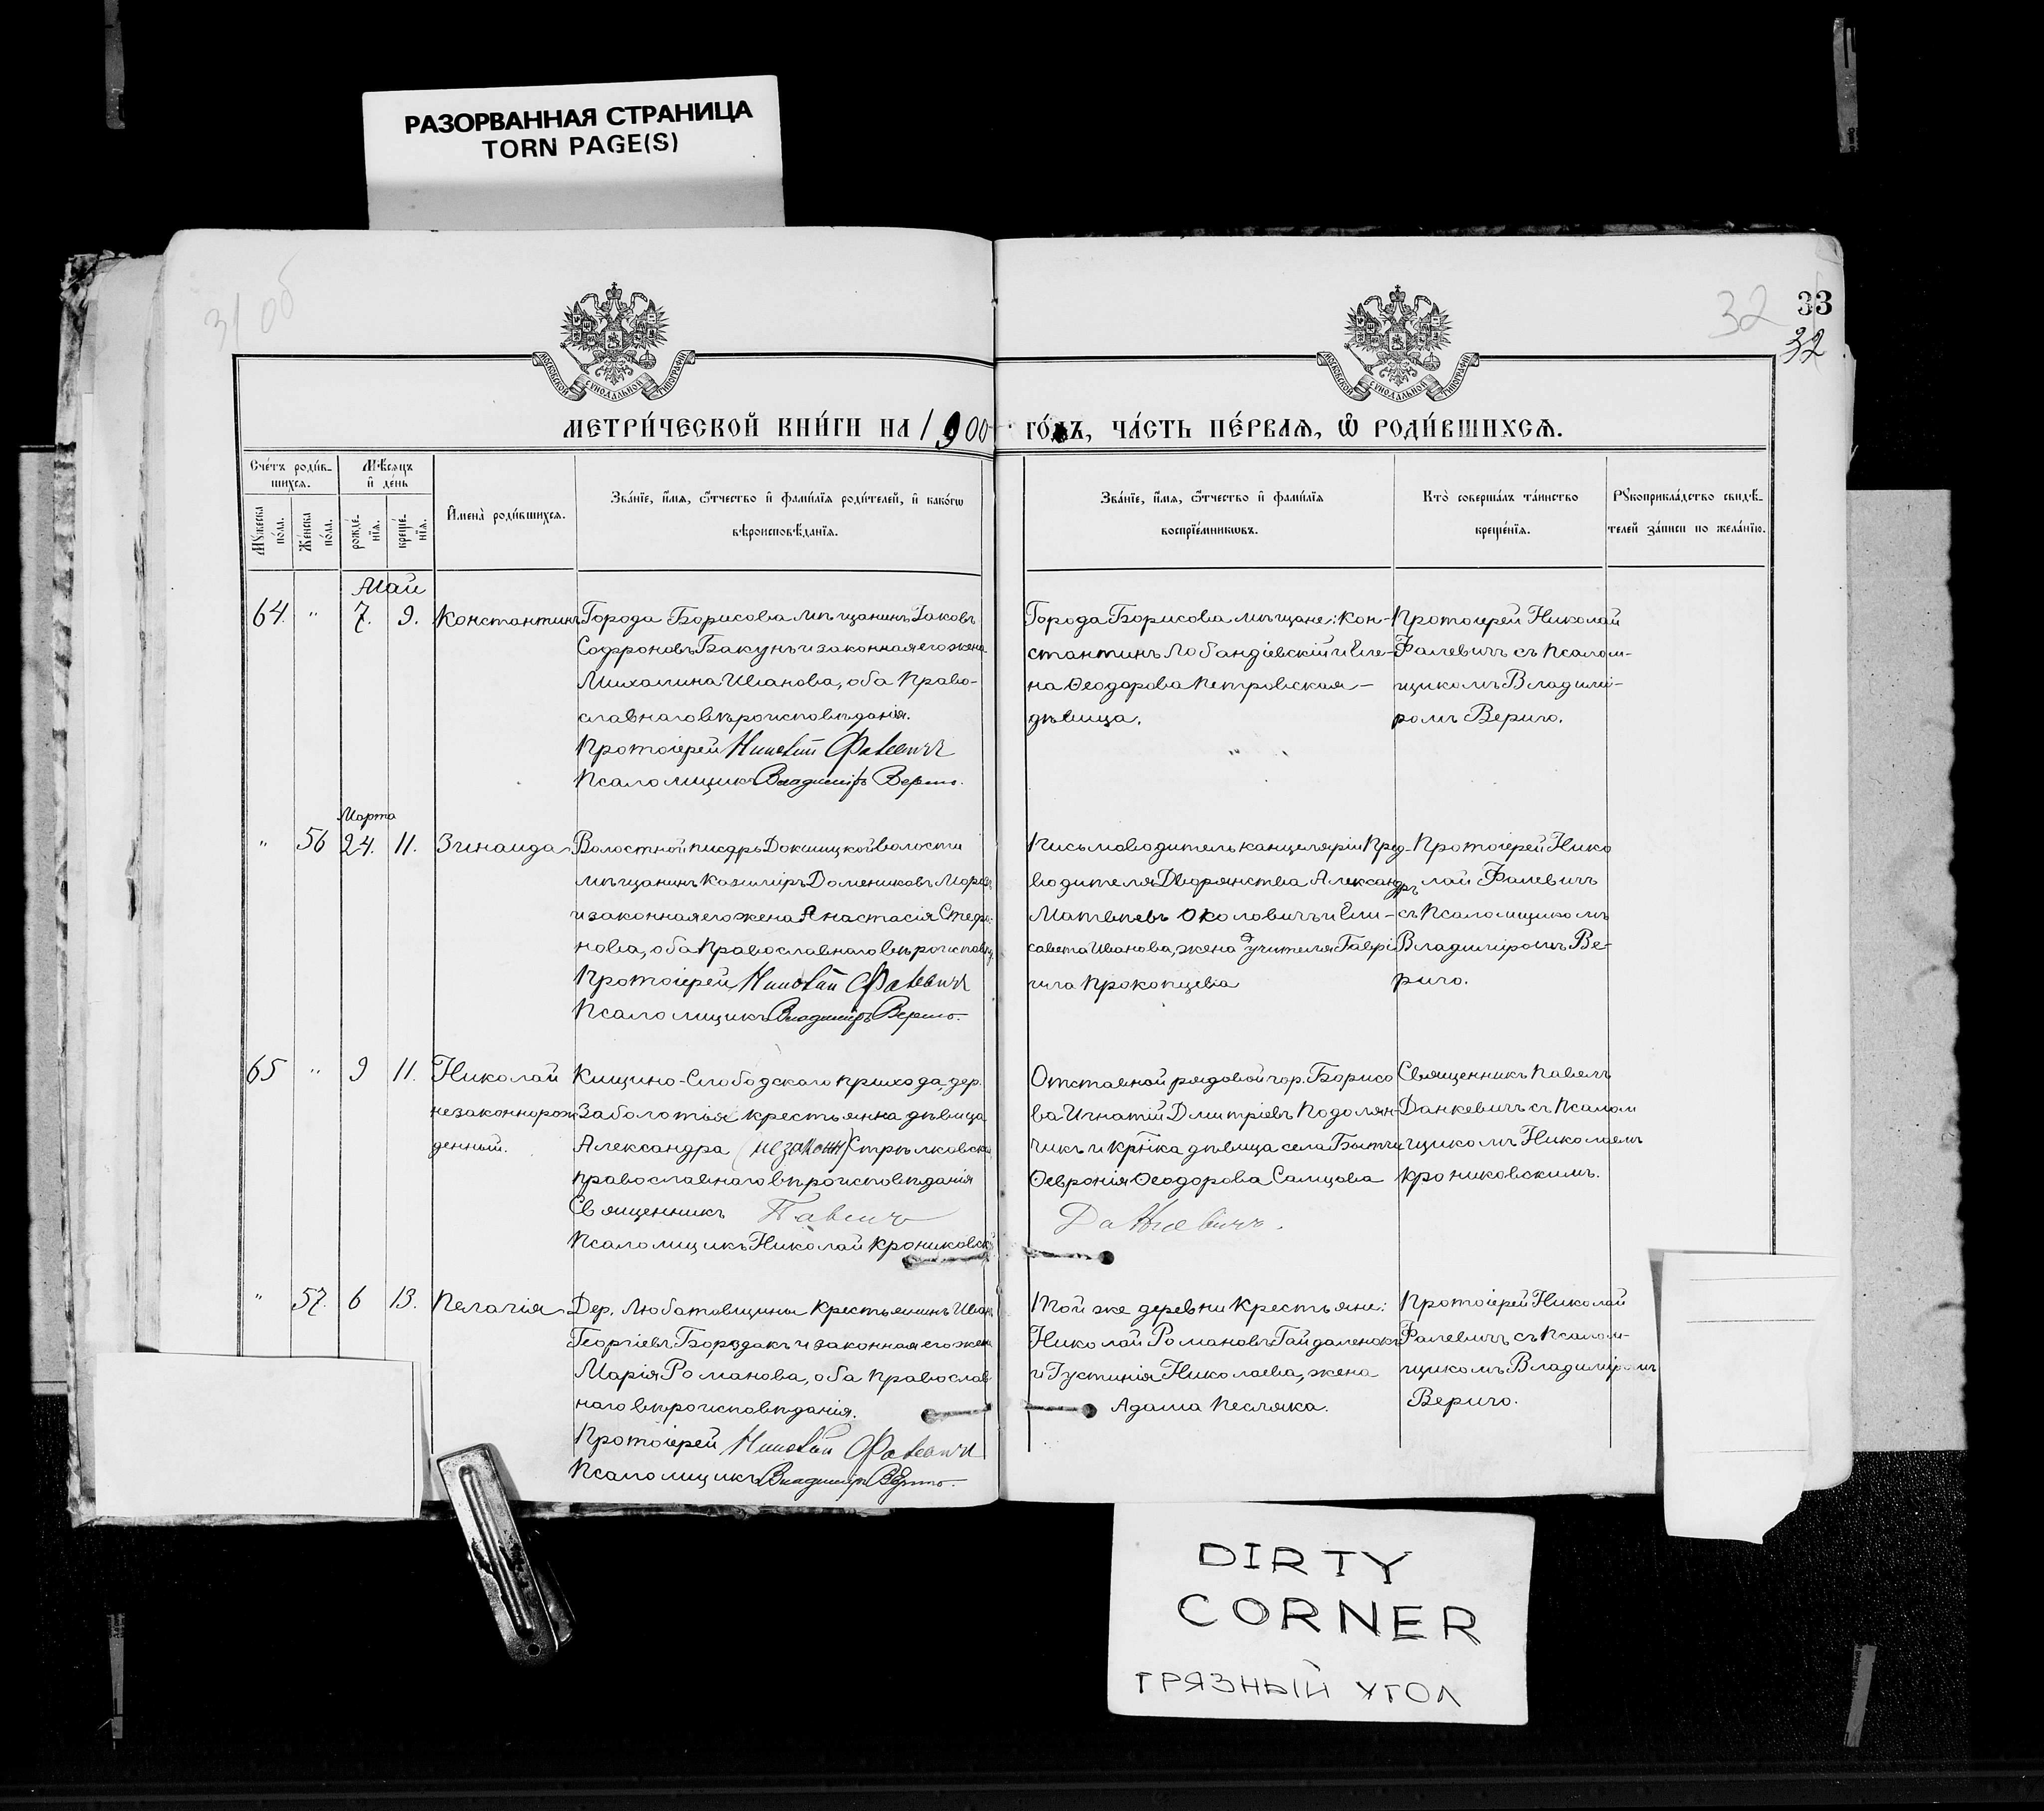 РАЗОРВАННАЯ СТРАНИЦА
TORN PAGE(S)
31 об
32
33
32
МОСКОВСКОЙ СУНОДАЛЬНОЙ ТИПОГРАФІИ
МОСКОВСКОЙ СУНОДАЛЬНОЙ ТИПОГРАФІИ
МЕТРИ́ЧЕСКОЙ КНИ́ГИ НА 1900 ГО́ДЪ, ЧА́СТЬ ПЕ́РВАѦ, Ѽ РОДИ́ВШИХСѦ.
Сче́тъ роди́в-
шихсѧ.
Мꙋ́жеска по́ла.
Же́нска по́ла.
Мѣ́сѧцъ
и҆ де́нь
рожде́-
нїѧ.
креще́-
нїѧ.
И҆мена̀ роди́вшихсѧ.
Зва́нїе, и҆́мѧ, ѻ҆́тчество и҆ фами́лїѧ роди́телей, и҆ како́гѡ
вѣроисповѣ́данїѧ.
Зва́нїе, и҆́мѧ, ѻ҆́тчество и҆ фами́лїѧ
воспрїе́мникѡвъ.
Кто̀ соверша́лъ та́инство
креще́нїѧ.
Рꙋкоприкла́дство свидѣ́-
телей за́писи по жела́нїю.
Май
64. " 7. 9. Константинъ
Города Борисова мѣщанинъ Іаковъ
Софроновъ Бакунъ и законная его жена
Михалина Иванова, оба право-
славнаго вѣроисповѣданія.
Протоіерей Николай Фалевичъ
Псаломщикъ Владиміръ Вериго.
Города Борисова мѣщане: Кон-
стантинъ Лобандіевскій и Еле-
на Ѳеодорова Петровская –
дѣвица.
Протоіерей Николай
Фалевичъ съ псалом-
щикомъ Владимі-
ромъ Вериго.
Марта
" 56 24. 11. Зинаида
Волостной писарь Докшицкой волости
мѣщанинъ Казиміръ Домениковъ
и законная его жена Анастасія Стефа-
нова, оба православнаго вѣроисповѣд.
Протоіерей Николай Фалевичъ
Псаломщикъ Владиміръ Вериго.
Письмоводитель канцеляріи Пред-
водителя Дворянства Александръ
Матвѣевъ Околовичъ и Ели-
савета Иванова, жена учителя Гаврі-
ила Прокопцева
Протоіерей Нико
лай Фалевичъ
съ псаломщикомъ
Владиміромъ Ве-
риго.
65 " 9 11. Николай
незаконнорож
денный.
Кищино-Слободскаго прихода, дер.
Заболотья крестьянка дѣвица
Александра (незакон) Стрѣлковская
православнаго вѣроисповѣданія
Священникъ Павелъ
Псаломщикъ Николай Крониковскій
Отставной рядовой гор. Борисо
ва Игнатій Дмитріевъ Подолян-
чикъ и крт҃ка дѣвица села Бытчи
Ѳевронія Ѳеодорова Самцова
Данкевичъ.
Священникъ Павелъ
Данкевичъ съ псалом
щикомъ Николаемъ
Крониковскимъ.
" 57. 6 13. Пелагія
Дер. Любатовщины крестьянинъ Иванъ
Георгіевъ Бороздакъ и законная его жена
Марія Романова, оба православ
наго вѣроисповѣданія.
Протоіерей Николай Фалевичъ
Псаломщикъ Владиміръ Вериго.
Той же деревни крестьяне:
Николай Романовъ Гайдаленокъ
и Іустинія Николаева, жена
Адама Песляка.
Протоіерей Николай
Фалевичъ съ псалом-
щикомъ Владиміромъ
Вериго.
DIRTY
CORNER
ГРЯЗНЫЙ УГОЛ